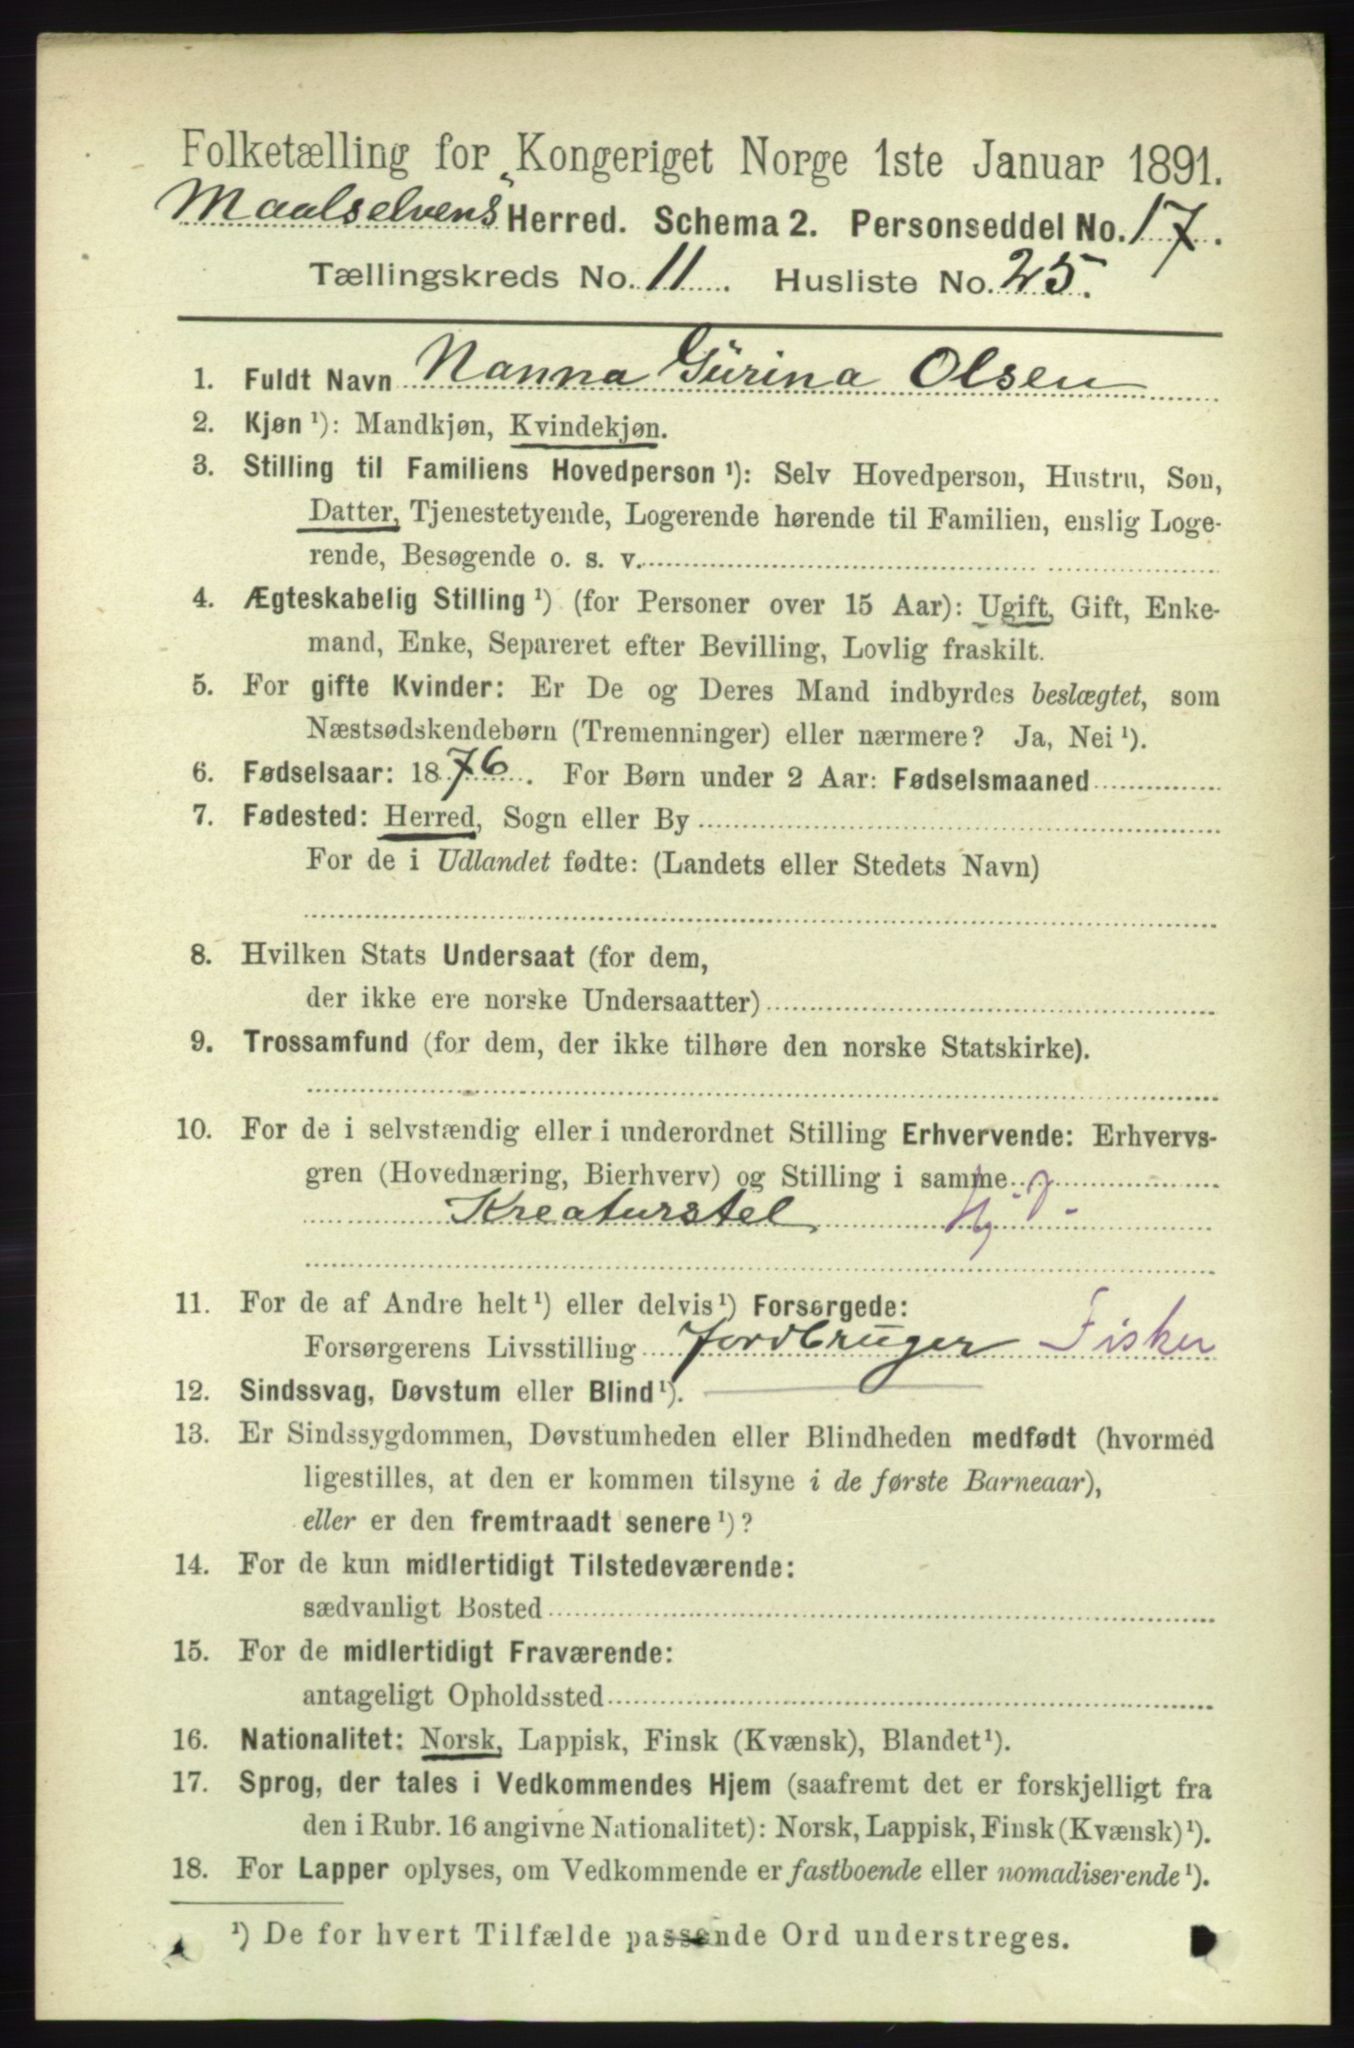 Folketælling for Kongeriget Norge 1ste Januar 1891.
Maalselvens Herred. Schema 2. Personseddel No. 17.
Tællingskreds No. 11. Husliste No. 25.
1. Fuldt Navn Nanna Gurina Olsen
2. Kjøn ¹): Mandkjøn, Kvindekjøn.
3. Stilling til Familiens Hovedperson ¹): Selv Hovedperson, Hustru, Søn,
Datter, Tjenestetyende, Logerende hørende til Familien, enslig Loge-
rende, Besøgende o. s. v.
4. Ægteskabelig Stilling ¹) (for Personer over 15 Aar): Ugift, Gift, Enke-
mand, Enke, Separeret efter Bevilling, Lovlig fraskilt.
5. For gifte Kvinder: Er De og Deres Mand indbyrdes beslægtet, som
Næstsødskendebørn (Tremenninger) eller nærmere? Ja, Nei ¹).
6. Fødselsaar: 1876. For Børn under 2 Aar: Fødselsmaaned
7. Fødested: Herred, Sogn eller By
For de i Udlandet fødte: (Landets eller Stedets Navn)
8. Hvilken Stats Undersaat (for dem,
der ikke ere norske Undersaatter)
9. Trossamfund (for dem, der ikke tilhøre den norske Statskirke).
10. For de i selvstændig eller i underordnet Stilling Erhvervende: Erhvervs-
gren (Hovednæring, Bierhverv) og Stilling i samme
Kreaturstel
11. For de af Andre helt ¹) eller delvis ¹) Forsørgede:
Forsørgerens Livsstilling Jordbruger Fisker
12. Sindssvag, Døvstum eller Blind ¹).
13. Er Sindssygdommen, Døvstumheden eller Blindheden medfødt (hvormed
ligestilles, at den er kommen tilsyne i de første Barneaar),
eller er den fremtraadt senere ¹)?
14. For de kun midlertidigt Tilstedeværende:
sædvanligt Bosted
15. For de midlertidigt Fraværende:
antageligt Opholdssted
16. Nationalitet: Norsk, Lappisk, Finsk (Kvænsk), Blandet ¹).
17. Sprog, der tales i Vedkommendes Hjem (saafremt det er forskjelligt fra
den i Rubr. 16 angivne Nationalitet): Norsk, Lappisk, Finsk (Kvænsk) ¹).
18. For Lapper oplyses, om Vedkommende er fastboende eller nomadiserende ¹).
¹) De for hvert Tilfælde passende Ord understreges.